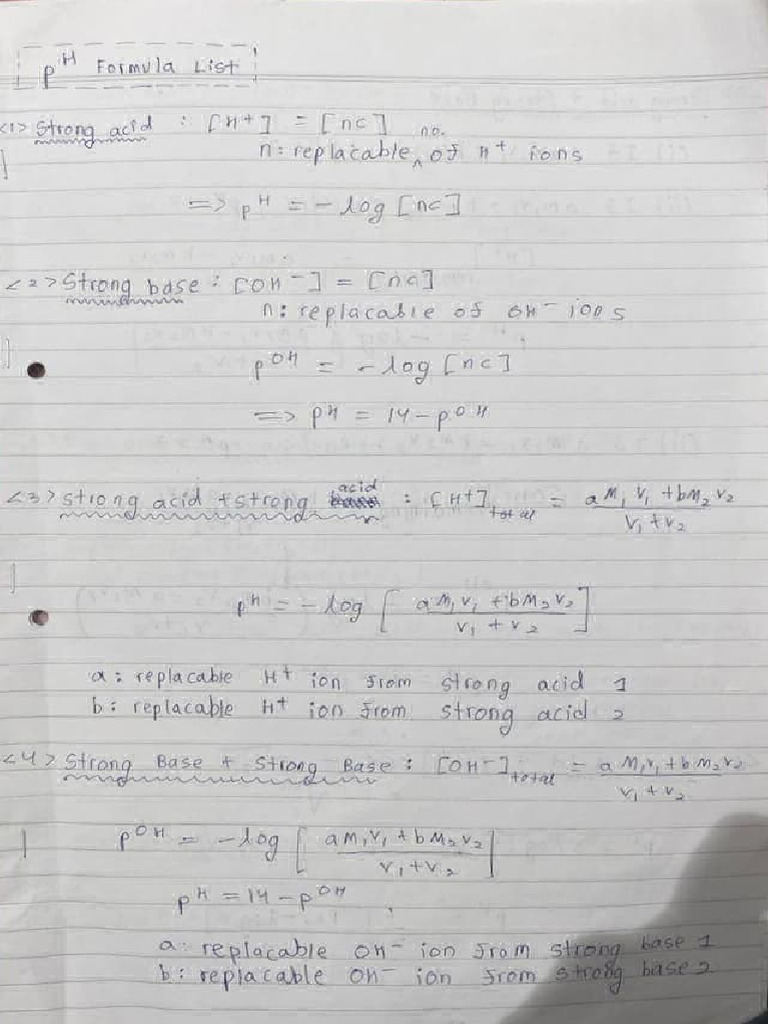 pH Formula List
<1> Strong acid : [H+] = [nc]
n: replacable no. of H+ ions
=> pH = -log [nc]
<2> Strong base : [OH-] = [nc]
n: replacable of OH- ions
pOH = -log [nc]
=> pH = 14 - pOH
<3> strong acid + strong acid : [H+]total = aM1V1 + bM2V2 / V1 + V2
pH = -log [ aM1V1 + bM2V2 / V1 + V2 ]
a : replacable H+ ion from strong acid 1
b : replacable H+ ion from strong acid 2
<4> Strong Base + Strong Base : [OH-]total = aM1V1 + bM2V2 / V1 + V2
pOH = -log [ aM1V1 + bM2V2 / V1 + V2 ]
pH = 14 - pOH
a : replacable OH- ion from strong base 1
b : replacable OH- ion from strong base 2